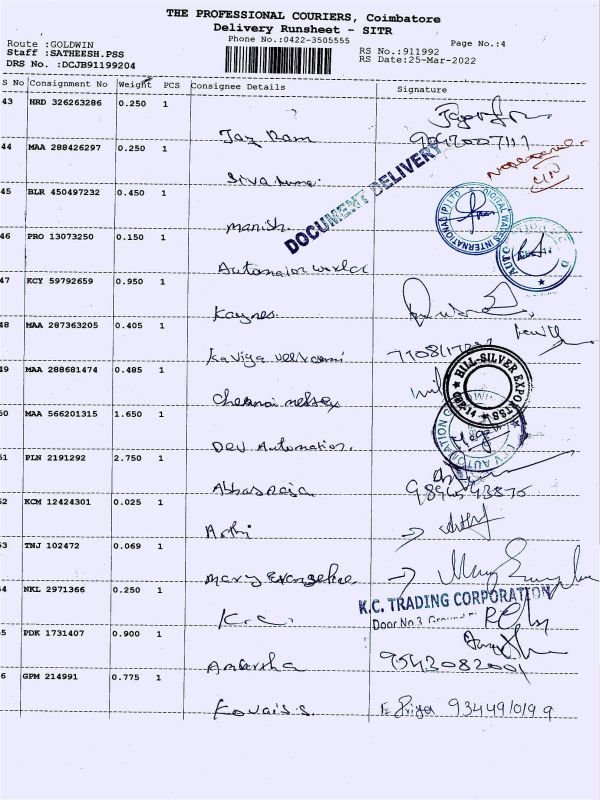 THE PROFESSIONAL COURIERS, Coimbatore
Delivery Runsheet - SITR
Phone No.:0422-3505555
Page No.:4
Route :GOLDWIN
Staff :SATHEESH.PSS
DRS No. :DCJB91199204
RS No.:911992
RS Date:25-Mar-2022
S No Consignment No Weight PCS Consignee Details Signature
43 HRD 326263286 0.250 1
Jay Ram 9047007111
44 MAA 288426297 0.250 1
Siva
DOCUMENT DELIVERY
45 BLR 450497232 0.450 1
DIGITAL WAVES INTERNATIONAL (P) LTD
manish.
46 PRO 13073250 0.150 1
Automation world
47 KCY 59792659 0.950 1
Kaynes
48 MAA 287363205 0.405 1
Kaviya
HILL-SILVER EXPORTSS
CBE-14
49 MAA 288681474 0.485 1
Chennai
50 MAA 566201315 1.650 1
Dev Automation.
51 PLN 2191292 2.750 1
Abbas raja
52 KCM 12424301 0.025 1
Arthi
53 TNJ 102472 0.069 1
Mary
54 NKL 2971366 0.250 1
K.C. TRADING CORPORATION
Door No.3, Ground
K.C.
55 PDK 1731407 0.900 1
9543082001
56 GPM 214991 0.775 1
Kovais s. Priya 9344910199